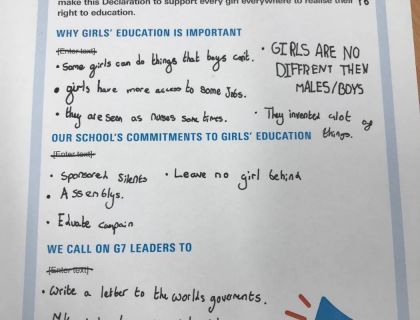 make this Declaration to support every girl everywhere to realise their
right to education.
WHY GIRLS' EDUCATION IS IMPORTANT
[Enter text]
• Some girls can do things that boys can't.
• girls have more access to some Jobs.
• they are seen as nurses some times.
• GIRLS ARE NO
DIFFRENT THEN
MALES/BOYS
• They invented alot of
things.
OUR SCHOOL'S COMMITMENTS TO GIRLS' EDUCATION
[Enter text]
• Sponsored Silents
• Leave no girl behind
• Assemblys.
• Eduate campain
WE CALL ON G7 LEADERS TO
[Enter text]
• Write a letter to the worlds goverments.